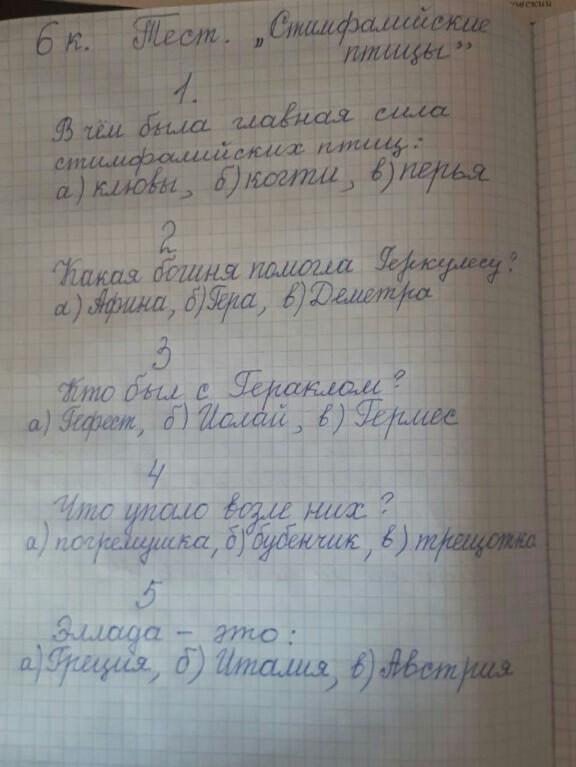 6 к. Тест. „Стимфалийские
птицы”
1.
В чём была главная сила
стимфалийских птиц:
а) клювы, б) когти, в) перья
2
Какая богиня помогла Геркулесу?
а) Афина, б) Гера, в) Деметра
3
Кто был с Гераклом?
а) Гефест, б) Иолай, в) Гермес
4
Что упало возле них?
а) погремушка, б) бубенчик, в) трещотка
5
Эллада – это:
а) Греция, б) Италия, в) Австрия